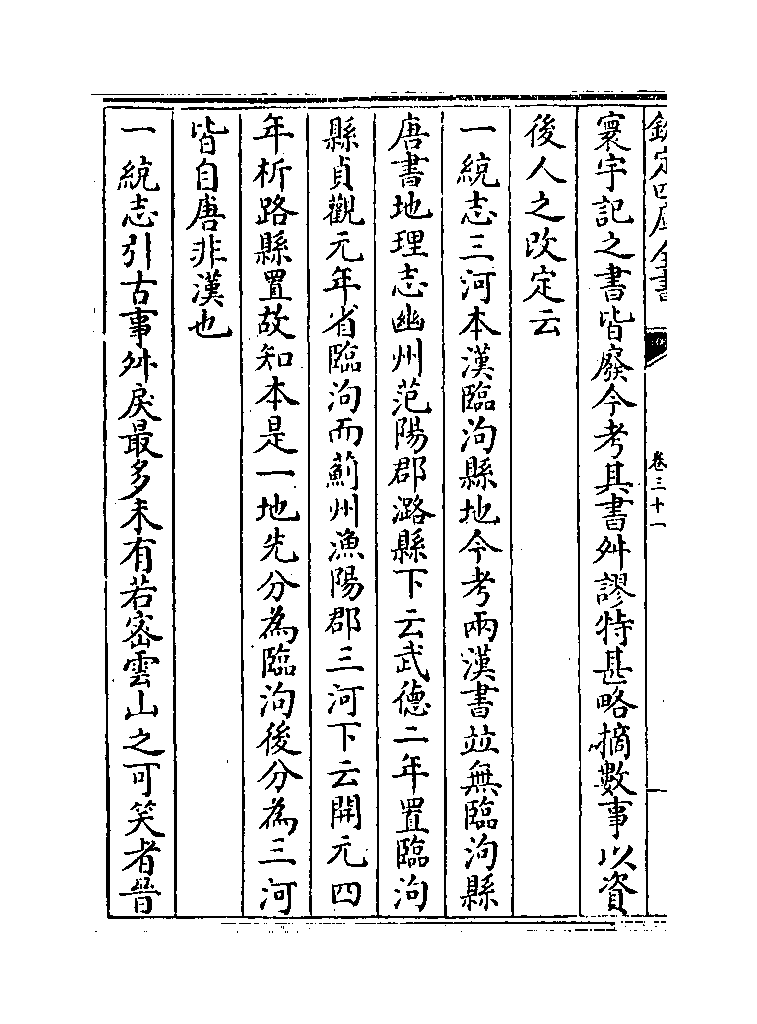 欽定四庫全書
卷三十一
寰宇記之書皆廢今考其書舛謬特甚略摘數事以資
後人之改定云
一統志三河本漢臨泃縣地今考兩漢書並無臨泃縣
唐書地理志幽州范陽郡潞縣下云武德二年置臨泃
縣貞觀元年省臨泃而薊州漁陽郡三河下云開元四
年析路縣置故知本是一地先分為臨泃後分為三河
皆自唐非漢也
一統志引古事舛戾最多未有若密雲山之可笑者晉